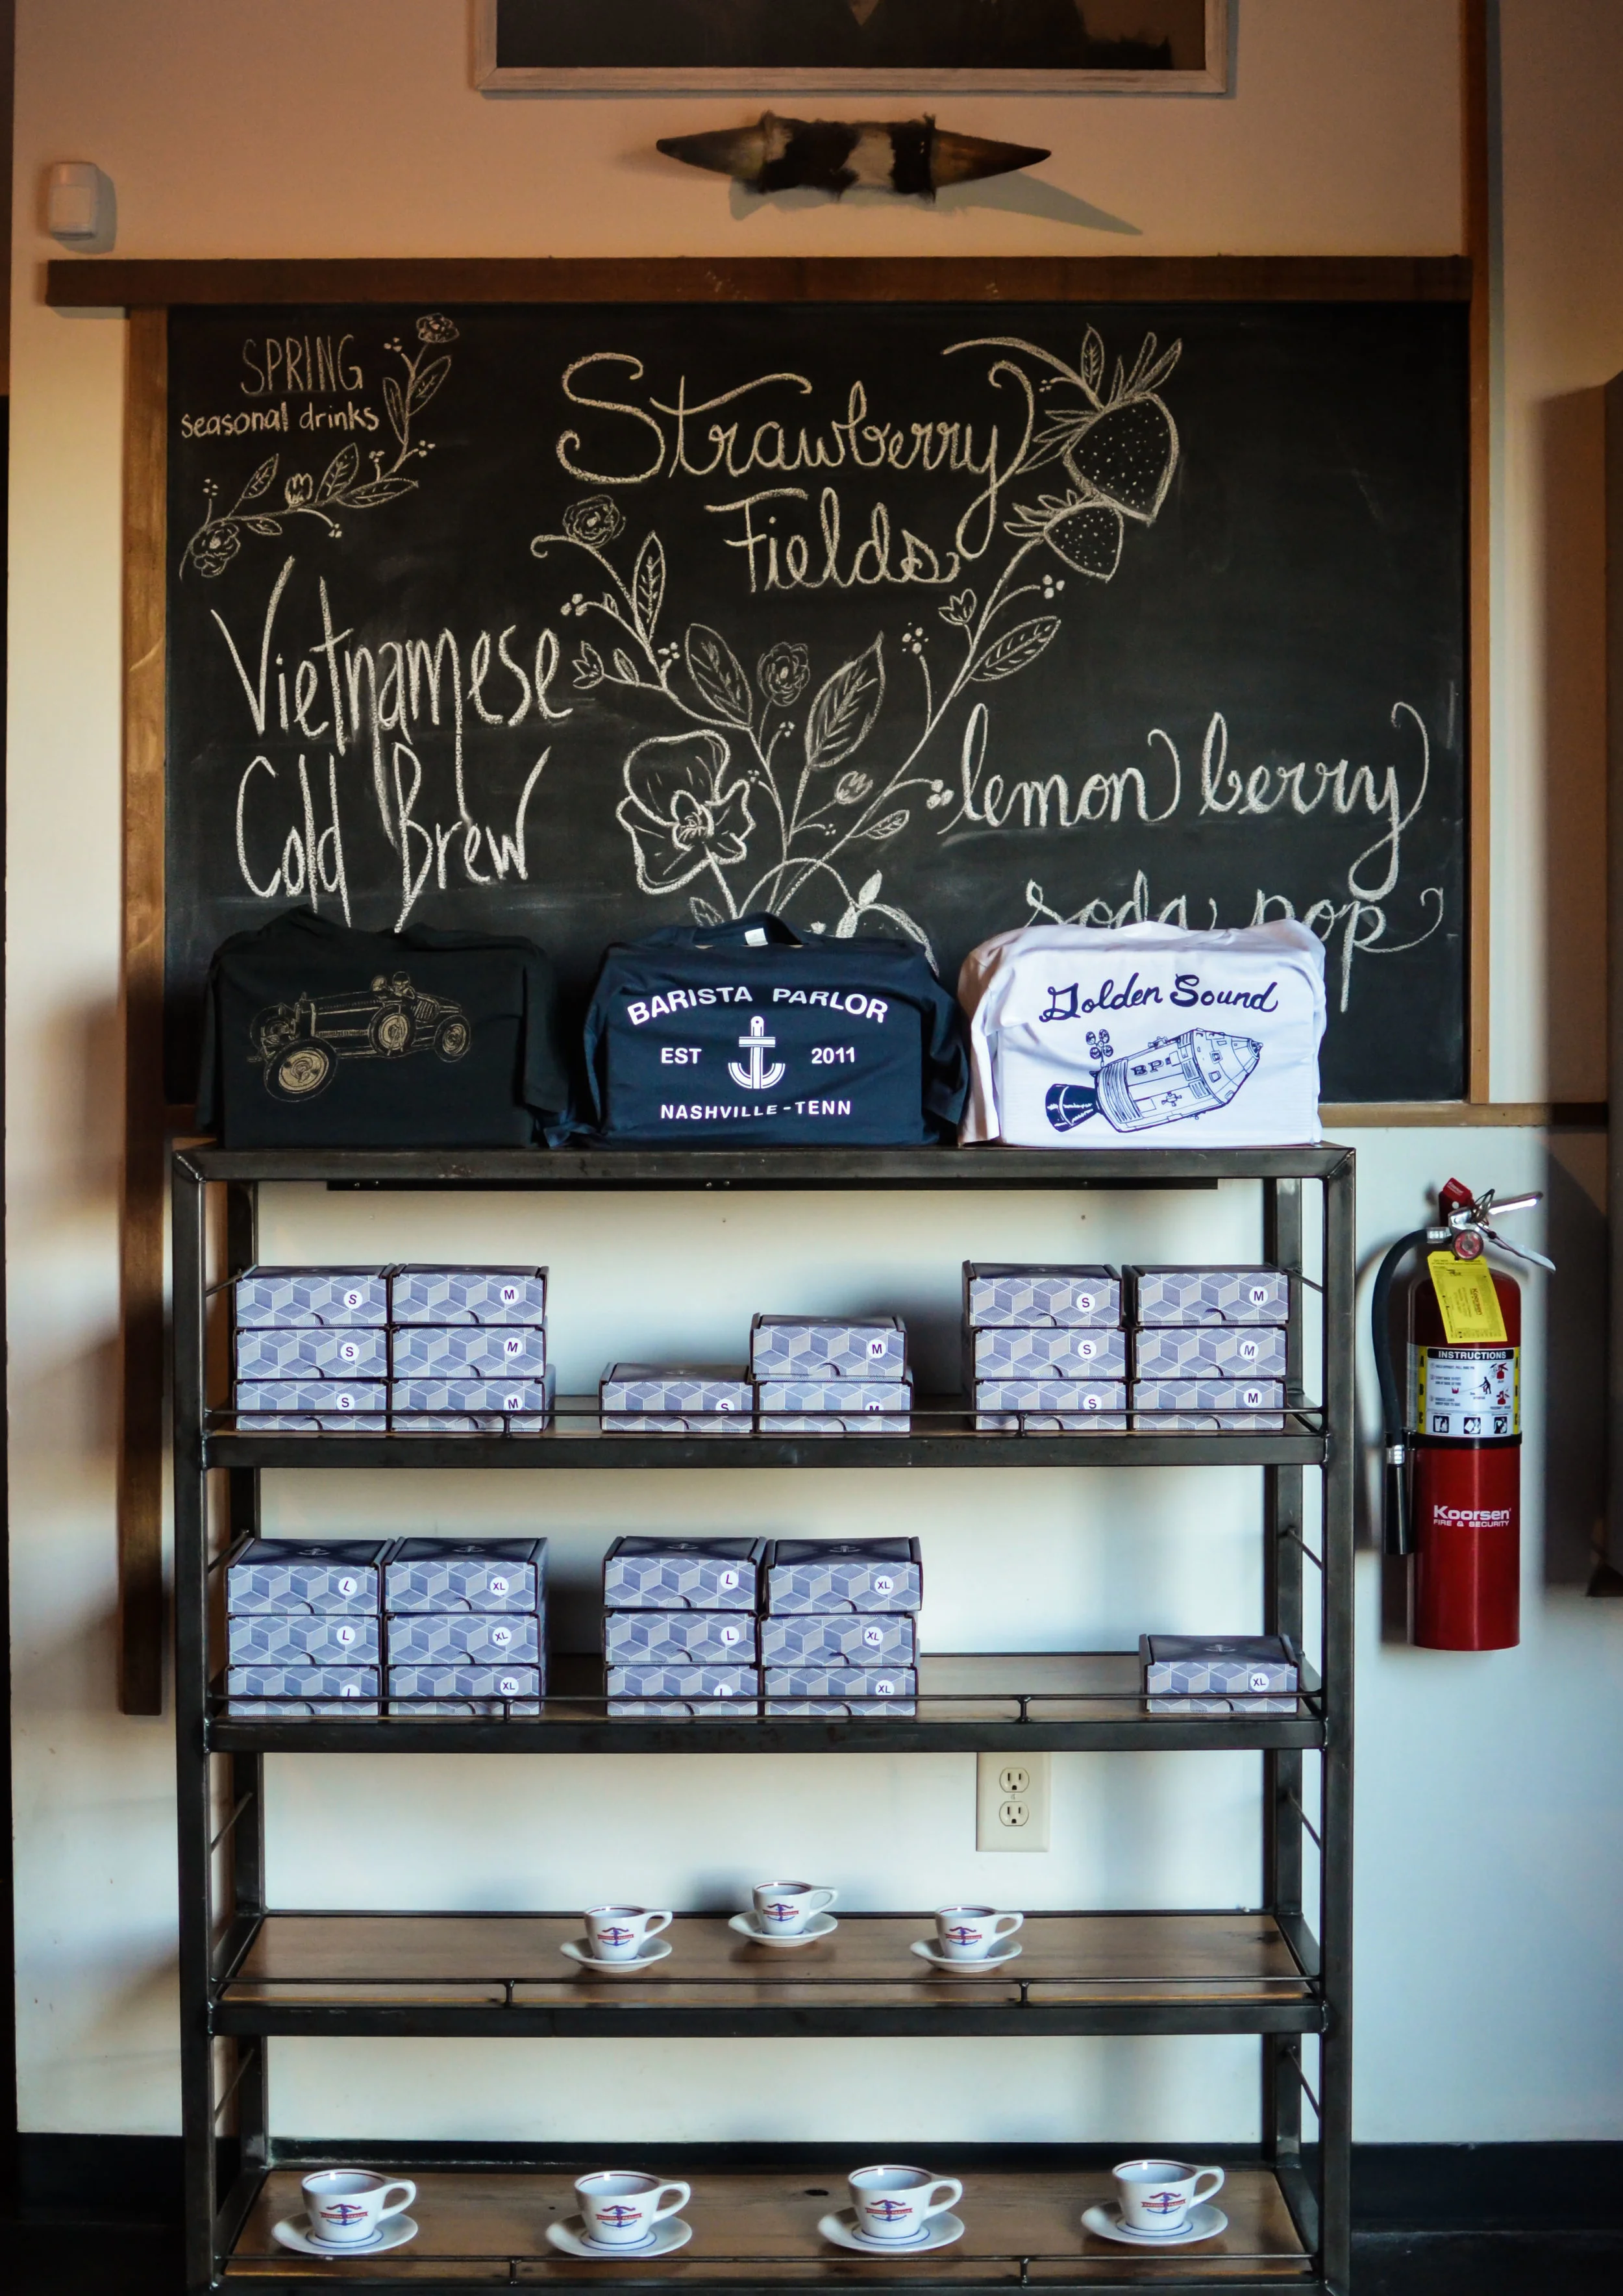 SPRING
seasonal drinks
Strawberry
Fields
Vietnamese
Cold Brew
lemon berry
soda pop
BARISTA PARLOR
EST 2011
NASHVILLE-TENN
Golden Sound
BP
S M S M
S M M S M
S M S M S M
INSTRUCTIONS
A
B
C
Koorsen
FIRE & SECURITY
L XL L XL
L XL L XL
L XL L XL XL